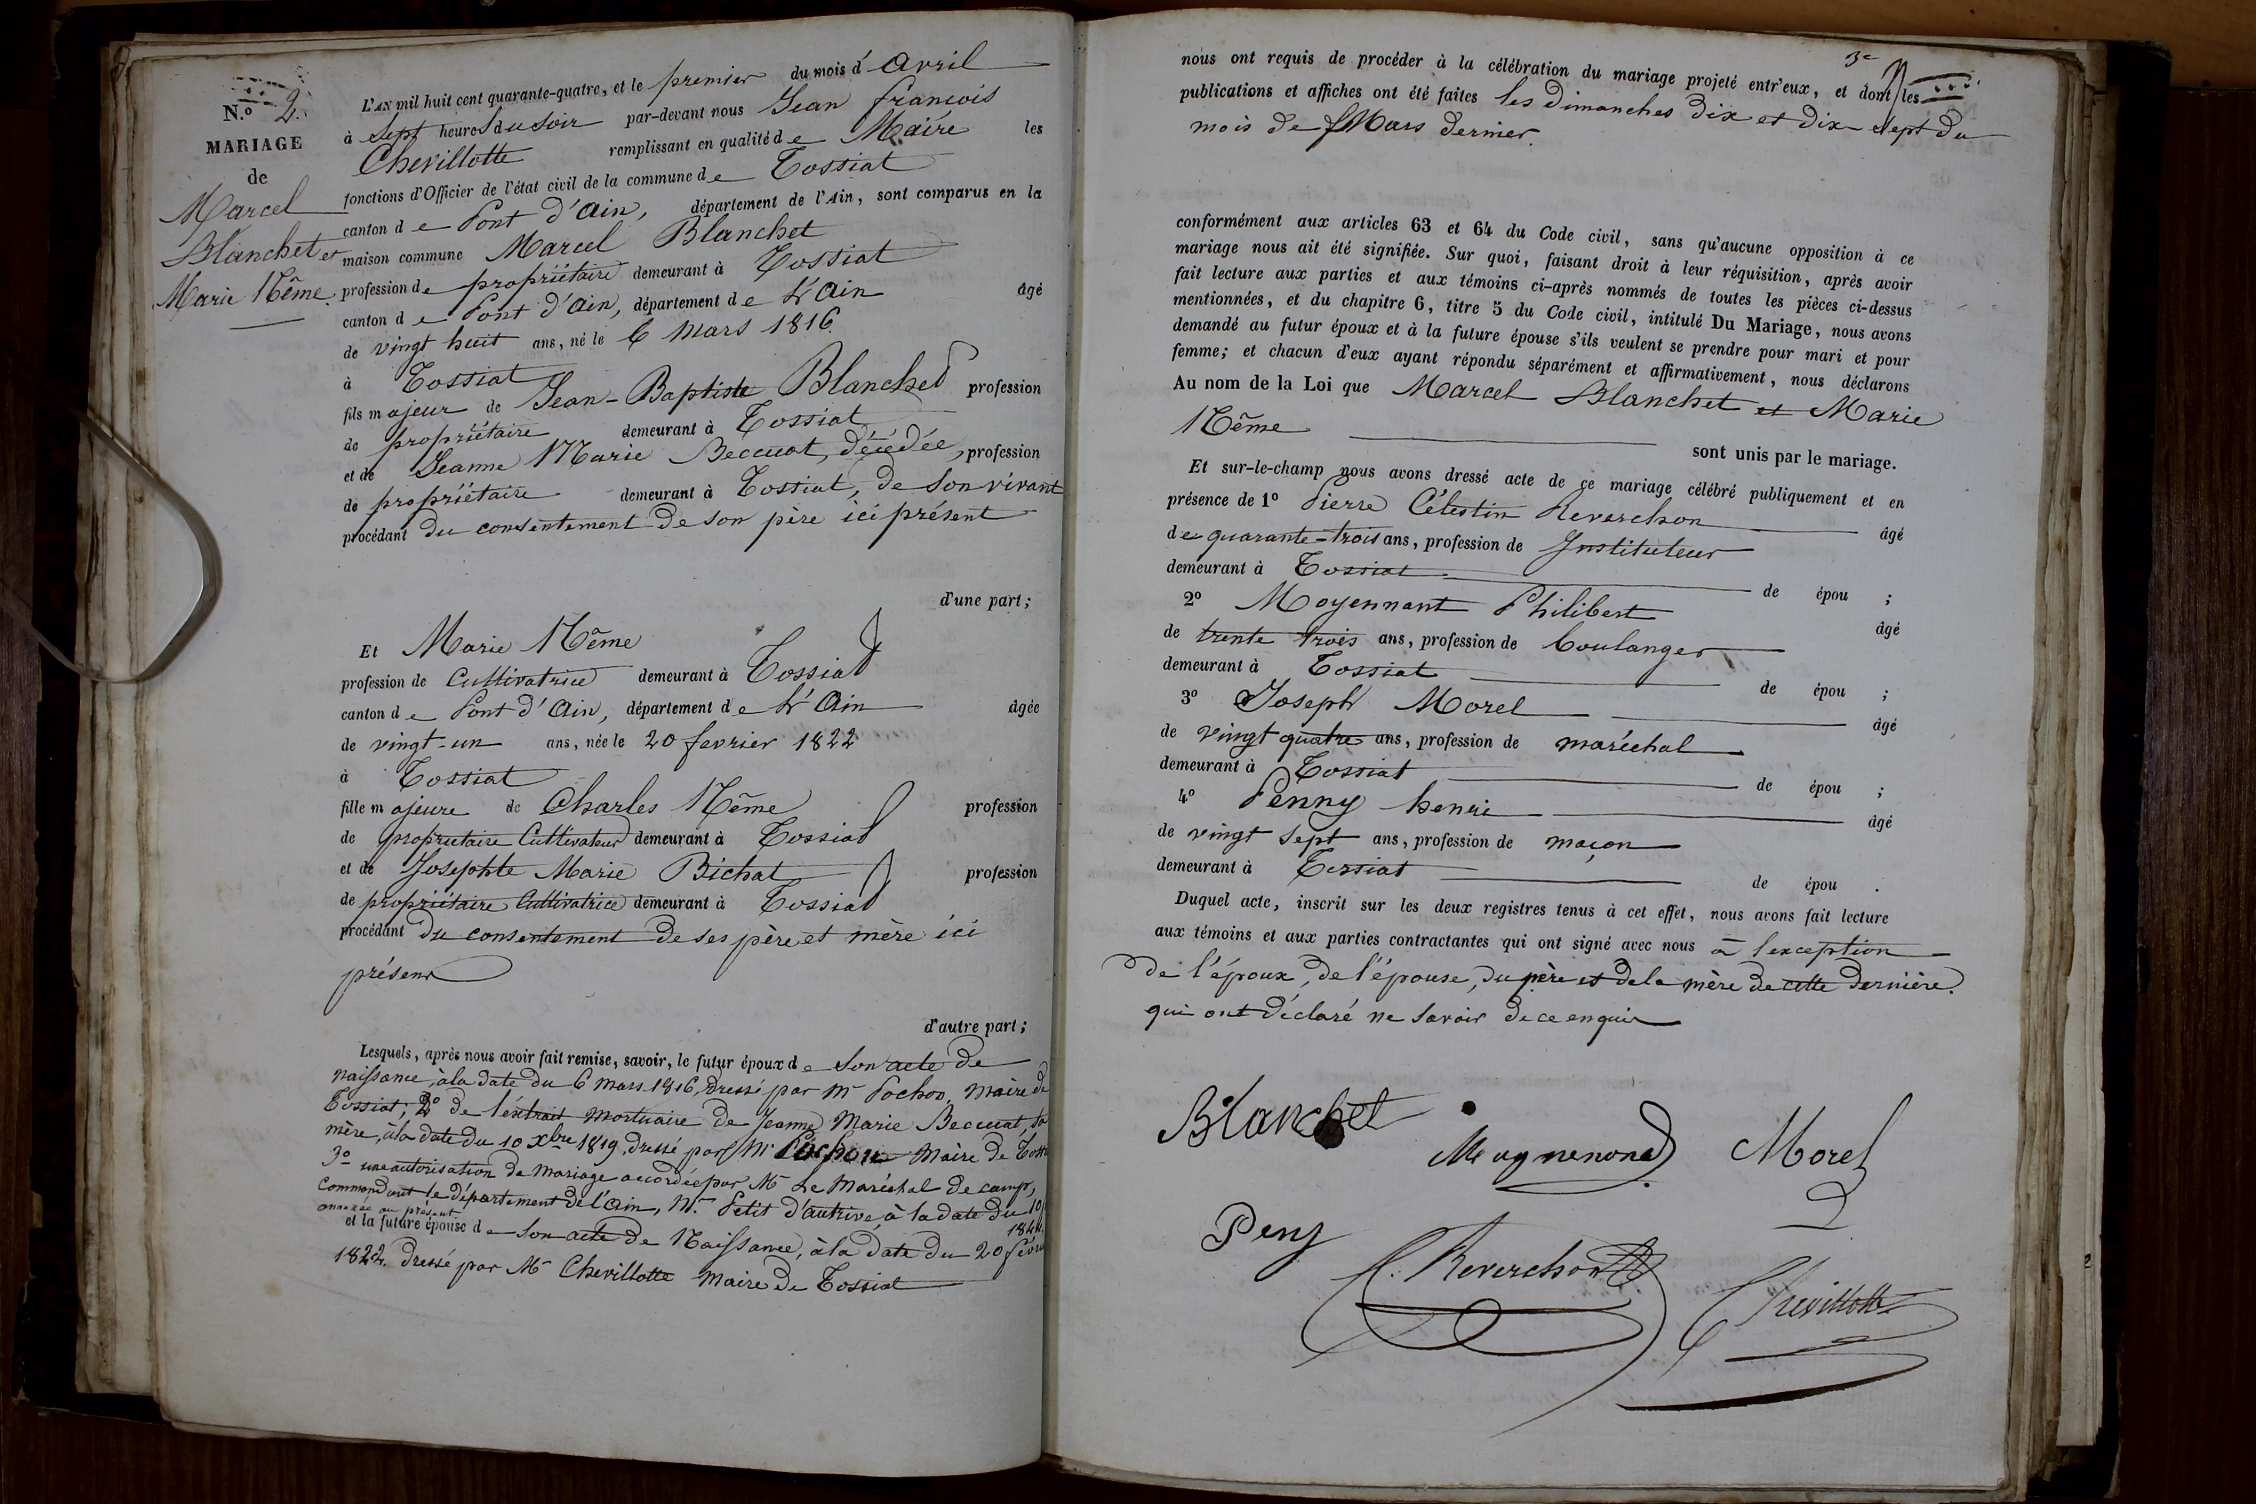 N.º 2.
MARIAGE
de
Marcel
Blanchet et
Marie Nême.
L'AN mil huit cent quarante-quatre, et le premier du mois d'avril
à sept heures du soir par-devant nous Jean françois
Chevillotte remplissant en qualité de Maire les
fonctions d'Officier de l'état civil de la commune de Tossiat
canton de Pont d'ain, département de l'Ain, sont comparus en la
maison commune Marcel Blanchet
profession de propriétaire demeurant à Tossiat
canton de Pont d'ain, département de L'ain âgé
de vingt huit ans, né le 6 mars 1816.
à Tossiat
fils majeur de Jean-Baptiste Blanchet profession
de propriétaire demeurant à Tossiat
et de Jeanne Marie Beccuat, décédée, profession
de propriétaire demeurant à Tossiat, de son vivant
procédant du consentement de son père ici présent
d'une part;
Et Marie Nême
profession de Cultivatrice demeurant à Tossiat
canton de Pont d'ain, département de L'ain âgée
de vingt-un ans, née le 20 fevrier 1822
à Tossiat
fille majeure de Charles Nême profession
de propriétaire Cultivateur demeurant à Tossiat
et de Josephte Marie Bichat profession
de propriétaire Cultivatrice demeurant à Tossiat
procédant du consentement de ses père et mère ici
présent
d'autre part;
Lesquels, après nous avoir fait remise, savoir, le futur époux de son acte de
naissance, à la date du 6 mars 1816, dressé par Mr Pochon, maire de
Tossiat; 2º de l'extrait mortuaire de Jeanne Marie Beccuat, sa
mère, à la date du 10 Xbre 1819, dressé par Mr Pochon Maire de Toss
3º une autorisation de mariage accordée par Mr Le Maréchal de camp,
Commandant le département de l'ain, Mr. Petit d'autrive, à la date du 10
annexée au présent 1844
et la future épouse de son acte de Naissance, à la date du 20 févri
1822. dressé par Mr Chevillotte maire de Tossiat
3e
nous ont requis de procéder à la célébration du mariage projeté entr'eux, et dont les
publications et affiches ont été faites les dimanches dix et dix-sept du
mois de Mars dernier.
conformément aux articles 63 et 64 du Code civil, sans qu'aucune opposition à ce
mariage nous ait été signifiée. Sur quoi, faisant droit à leur réquisition, après avoir
fait lecture aux parties et aux témoins ci-après nommés de toutes les pièces ci-dessus
mentionnées, et du chapitre 6, titre 5 du Code civil, intitulé Du Mariage, nous avons
demandé au futur époux et à la future épouse s'ils veulent se prendre pour mari et pour
femme; et chacun d'eux ayant répondu séparément et affirmativement, nous déclarons
Au nom de la Loi que Marcel Blanchet et Marie
Nême sont unis par le mariage.
Et sur-le-champ nous avons dressé acte de ce mariage célébré publiquement et en
présence de 1º Pierre Célestin Reverchon âgé
de quarante-trois ans, profession de Instituteur
demeurant à Tossiat de épou ;
2º Moyennant Philibert âgé
de trente trois ans, profession de boulanger
demeurant à Tossiat de épou ;
3º Joseph Morel âgé
de vingt quatre ans, profession de maréchal
demeurant à Tossiat de épou ;
4º Penny henri âgé
de vingt sept ans, profession de maçon
demeurant à Tossiat de épou .
Duquel acte, inscrit sur les deux registres tenus à cet effet, nous avons fait lecture
aux témoins et aux parties contractantes qui ont signé avec nous à l'exception
de l'époux, de l'épouse, du père et de la mère de cette dernière.
qui ont déclaré ne savoir de ce enquis
Blanchet
Morel
Peny
C. Reverchon
Chevillotte
2